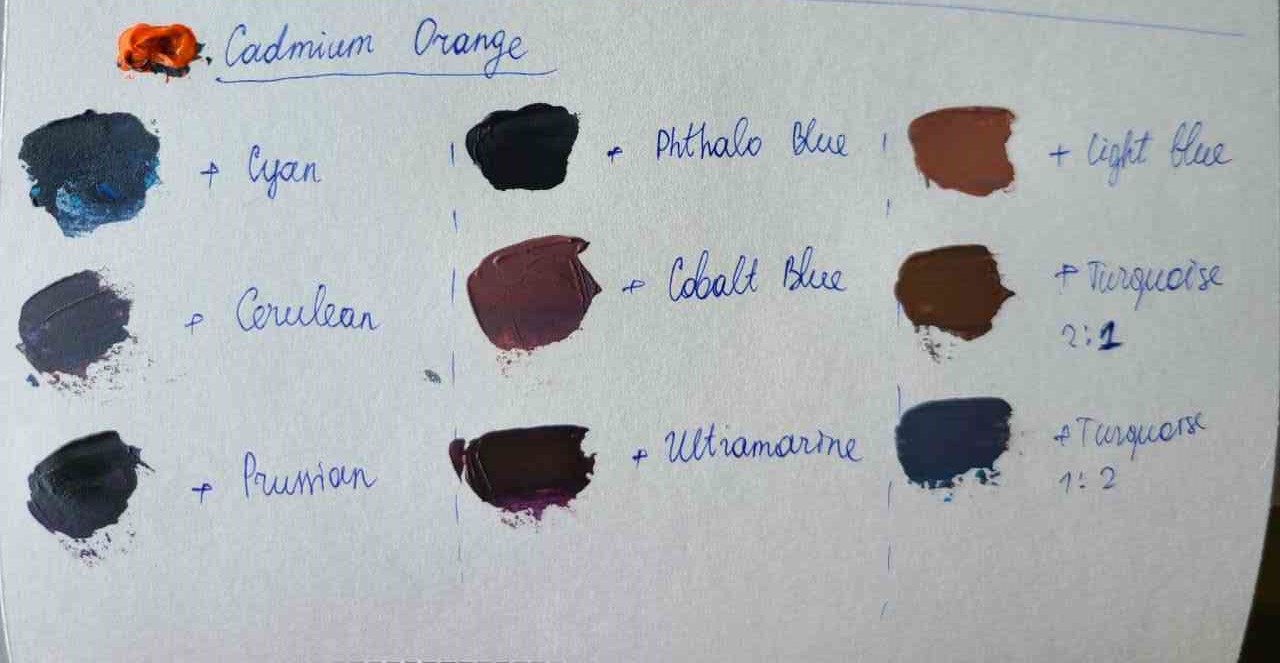 Cadmium Orange
+ Cyan
+ Cerulean
+ Prussian
+ Phthalo Blue
+ Cobalt Blue
+ Ultramarine
+ Light blue
+ Turquoise
2:1
+ Turquoise
1:2